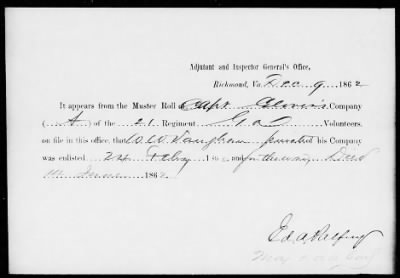 Adjutant and Inspector General's Office,
Richmond, Va. Dec 9 1862
It appears from the Muster Roll of Capt Company
(A) of the 21 Regiment Ga Volunteers.
on file in this office, that W. W. Vaughan private his Company
was enlisted 24 Feby 186 and for the war. Died
in 1862.
Ed. A. Palfrey